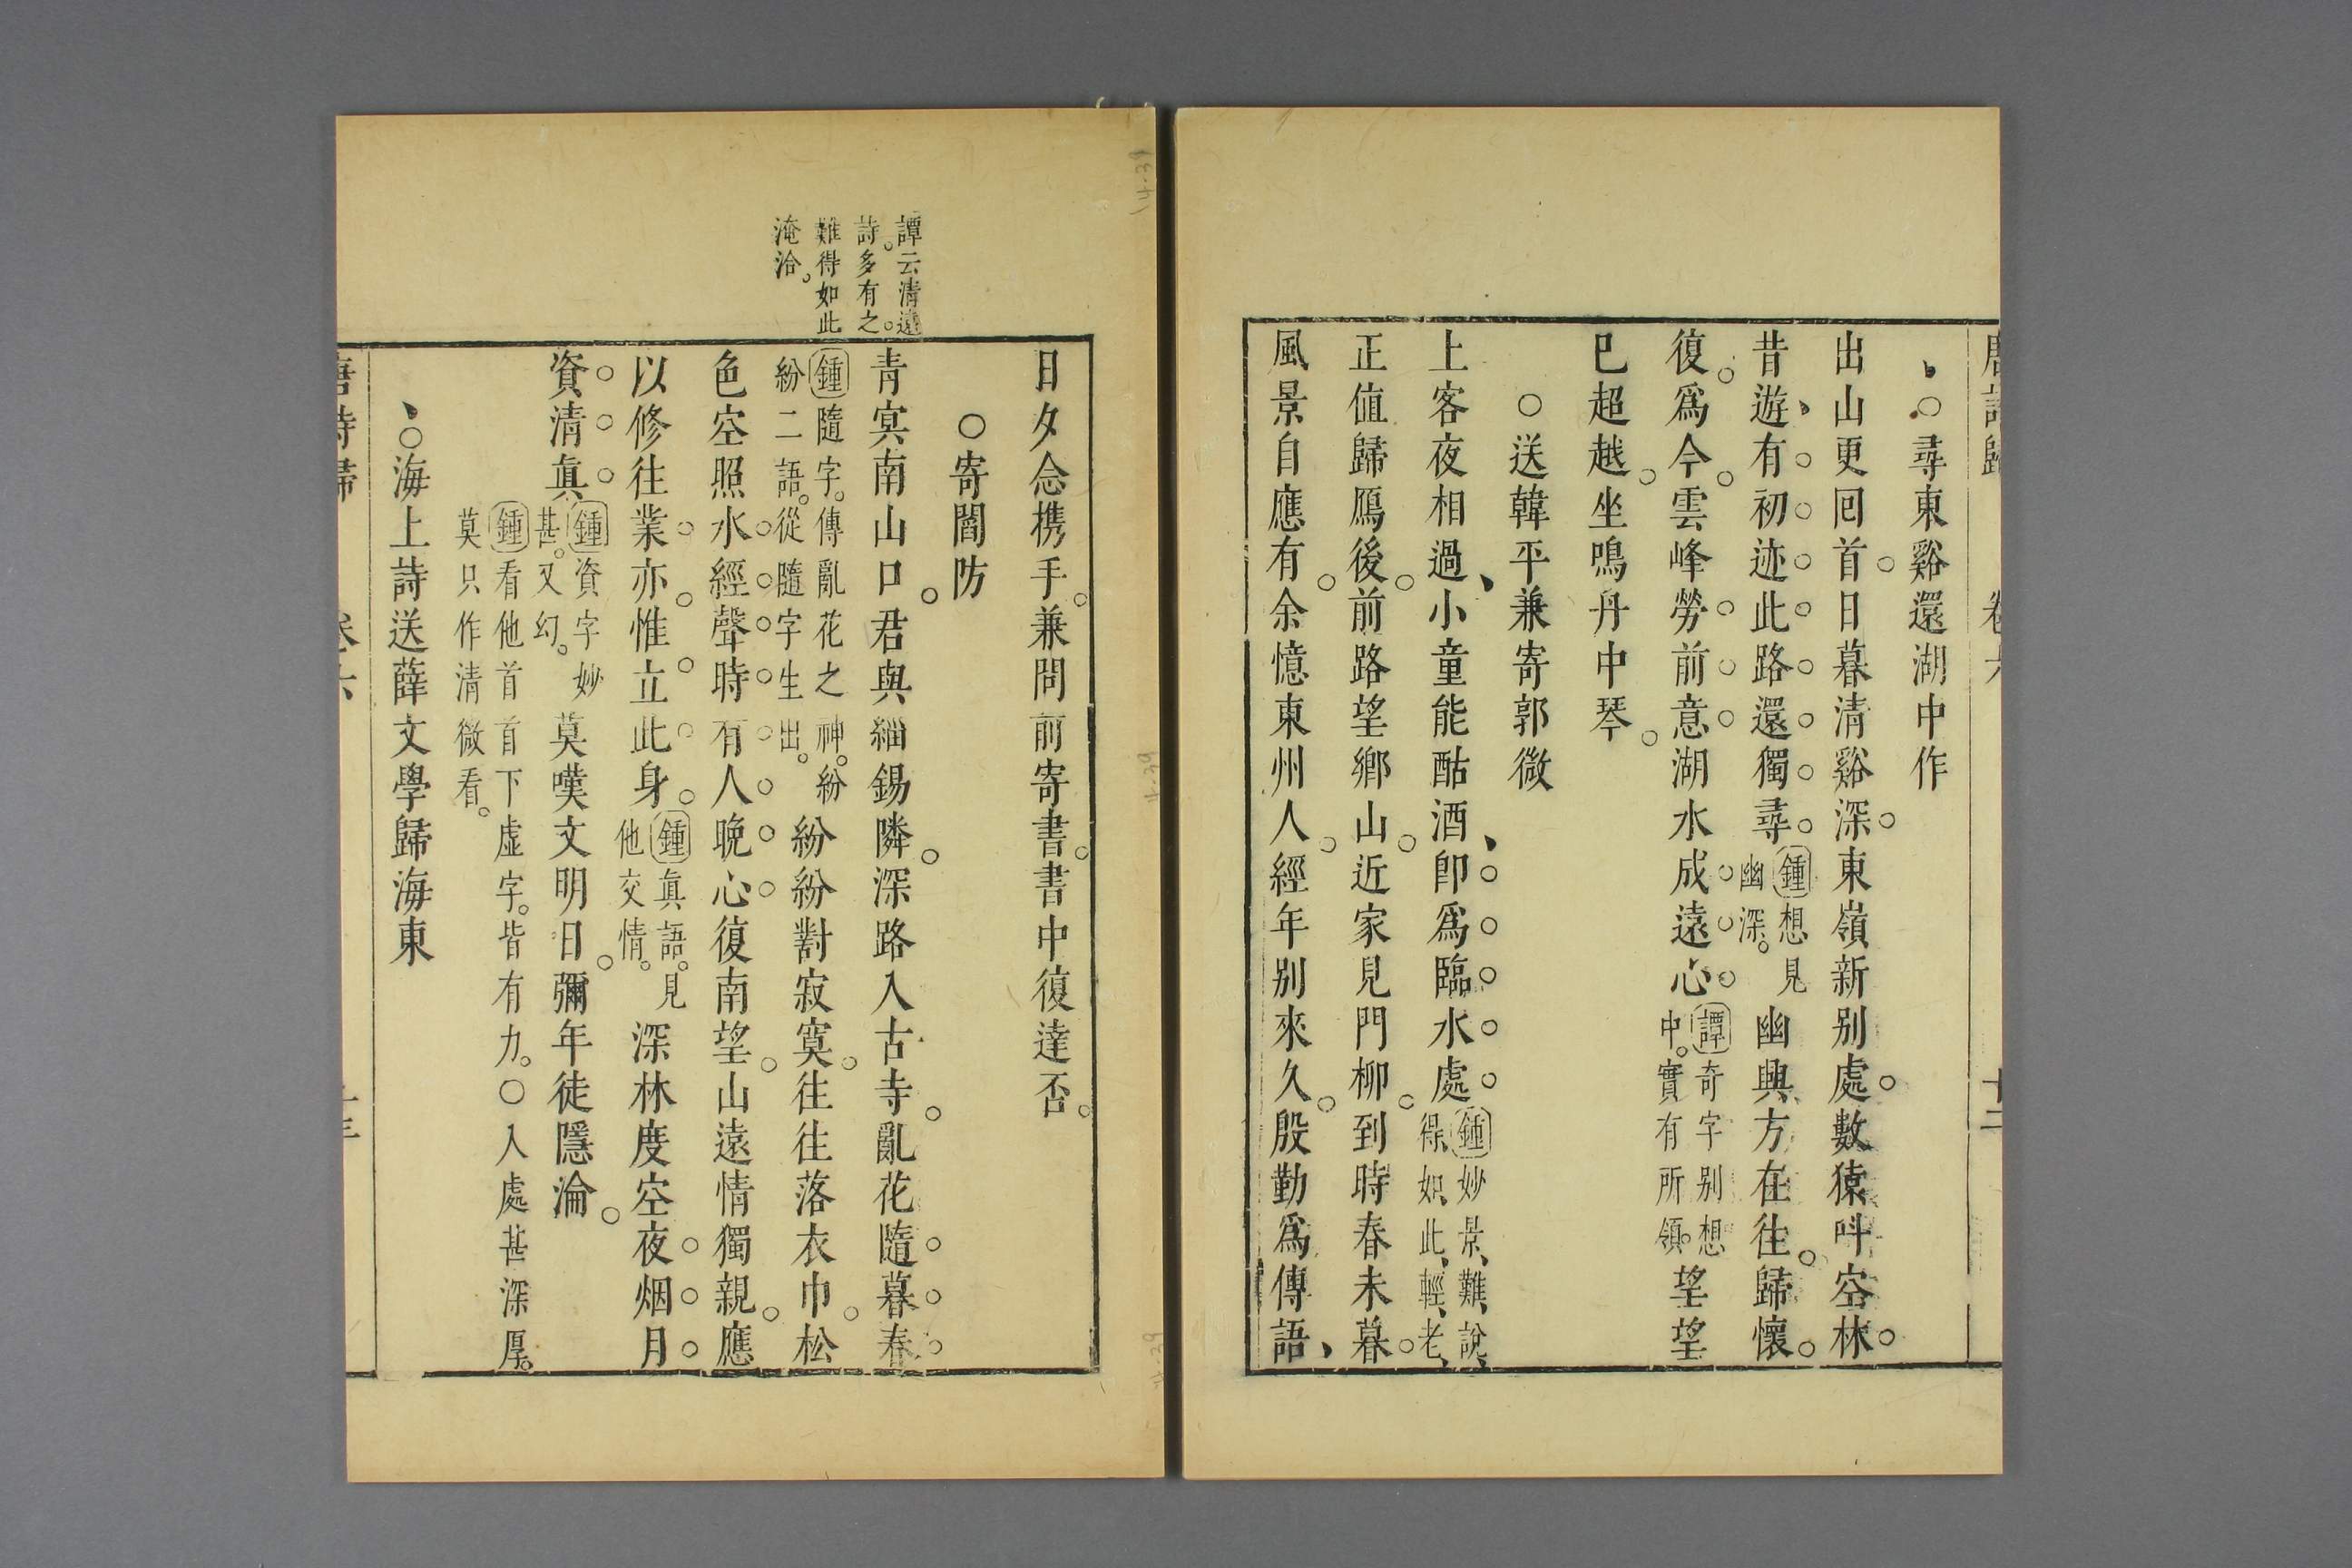 唐詩歸 卷六 十二
○尋東谿還湖中作
出山更囘首日暮清谿深東嶺新別處數猿呌空林
昔遊有初迹此路還獨尋鍾想見幽深。幽興方在往歸懷
復爲今雲峰勞前意湖水成遠心譚奇字別想中。實有所領。望望
已超越坐鳴丹中琴
○送韓平兼寄郭微
上客夜相過小童能酤酒卽爲臨水處鍾妙景、難說、得如此、輕、老、
正值歸鴈後前路望鄉山近家見門柳到時春未暮
風景自應有余憶東州人經年別來久殷勤爲傳語
日夕念携手兼問前寄書書中復達否
○寄閻防
譚云清遠
詩。多有之。
難得如此
淹洽。
青冥南山口君與緇錫隣深路入古寺亂花隨暮春
鍾隨字。傳亂花之神。紛紛二語。從隨字生出。紛紛對寂寞往往落衣巾松
色空照水經聲時有人晚心復南望山遠情獨親應
以修往業亦惟立此身鍾眞語。見他交情。深林度空夜烟月
資清眞鍾資字妙甚。又幻。莫嘆文明日彌年徒隱淪
鍾看他首首下虛字。皆有力。○入處甚深厚。莫只作清微看。
○海上詩送薛文學歸海東
唐詩歸 卷六